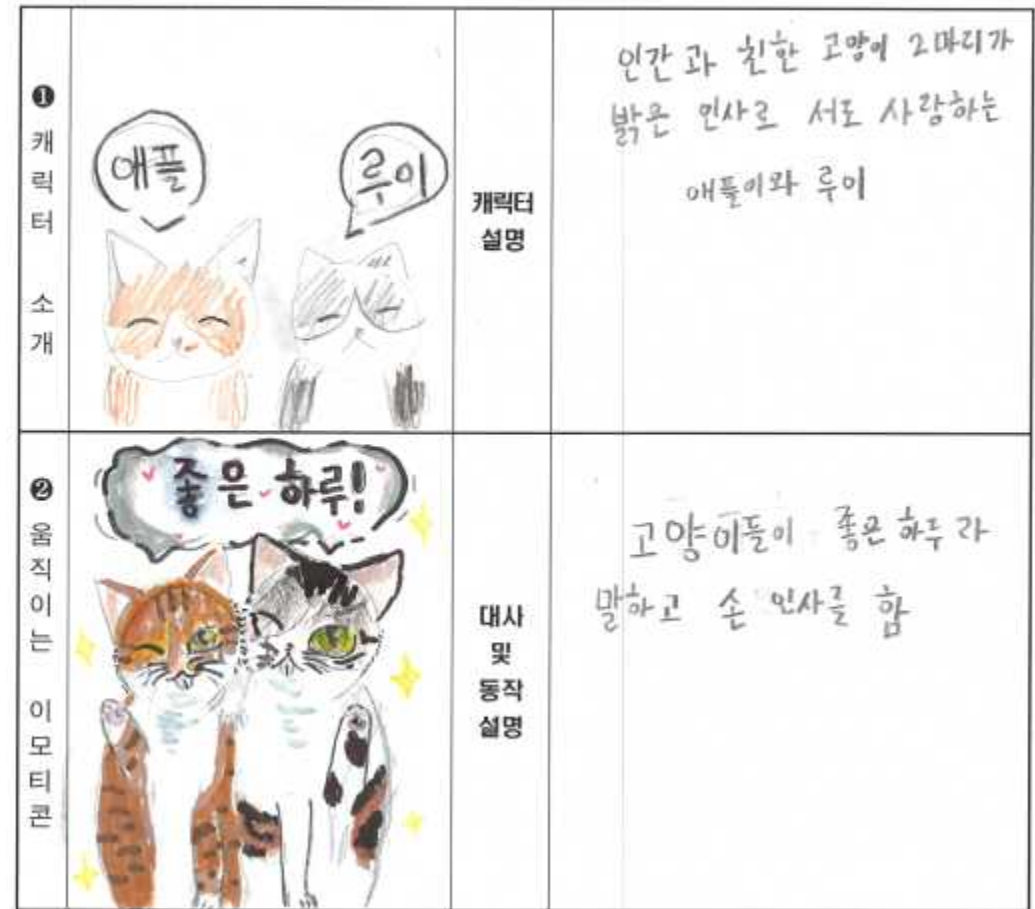 ❶ 캐릭터 소개
애플
루이
캐릭터
설명
인간과 친한 고양이 2마리가
밝은 인사로 서로 사랑하는
애플이와 루이
❷ 움직이는 이모티콘
좋은 하루!
대사
및
동작
설명
고양이들이 좋은 하루 라
말하고 손 인사를 함